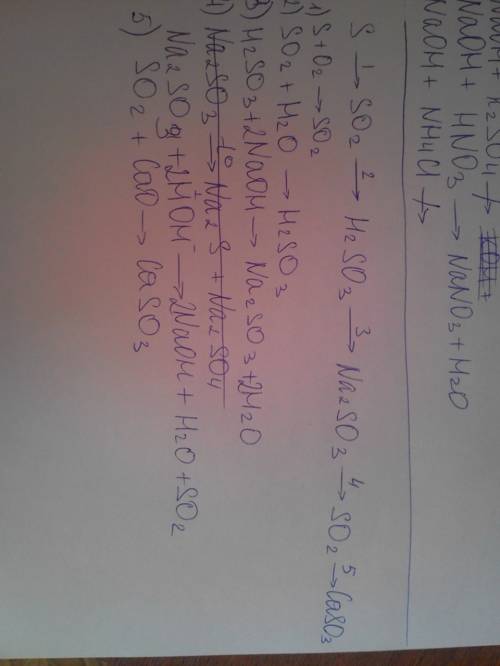 NaOH + H2SO4 ↛
NaOH + HNO3 → NaNO3 + H2O
NaOH + NH4Cl ↛
S —1→ SO2 —2→ H2SO3 —3→ Na2SO3 —4→ SO2 —5→ CaSO3
1) S + O2 → SO2
2) SO2 + H2O → H2SO3
3) H2SO3 + 2NaOH → Na2SO3 + 2H2O
4) Na2SO3 —t°→ Na2S + Na2SO4
Na2SO3 + 2H⁺OH⁻ → 2NaOH + H2O + SO2
5) SO2 + CaO → CaSO3